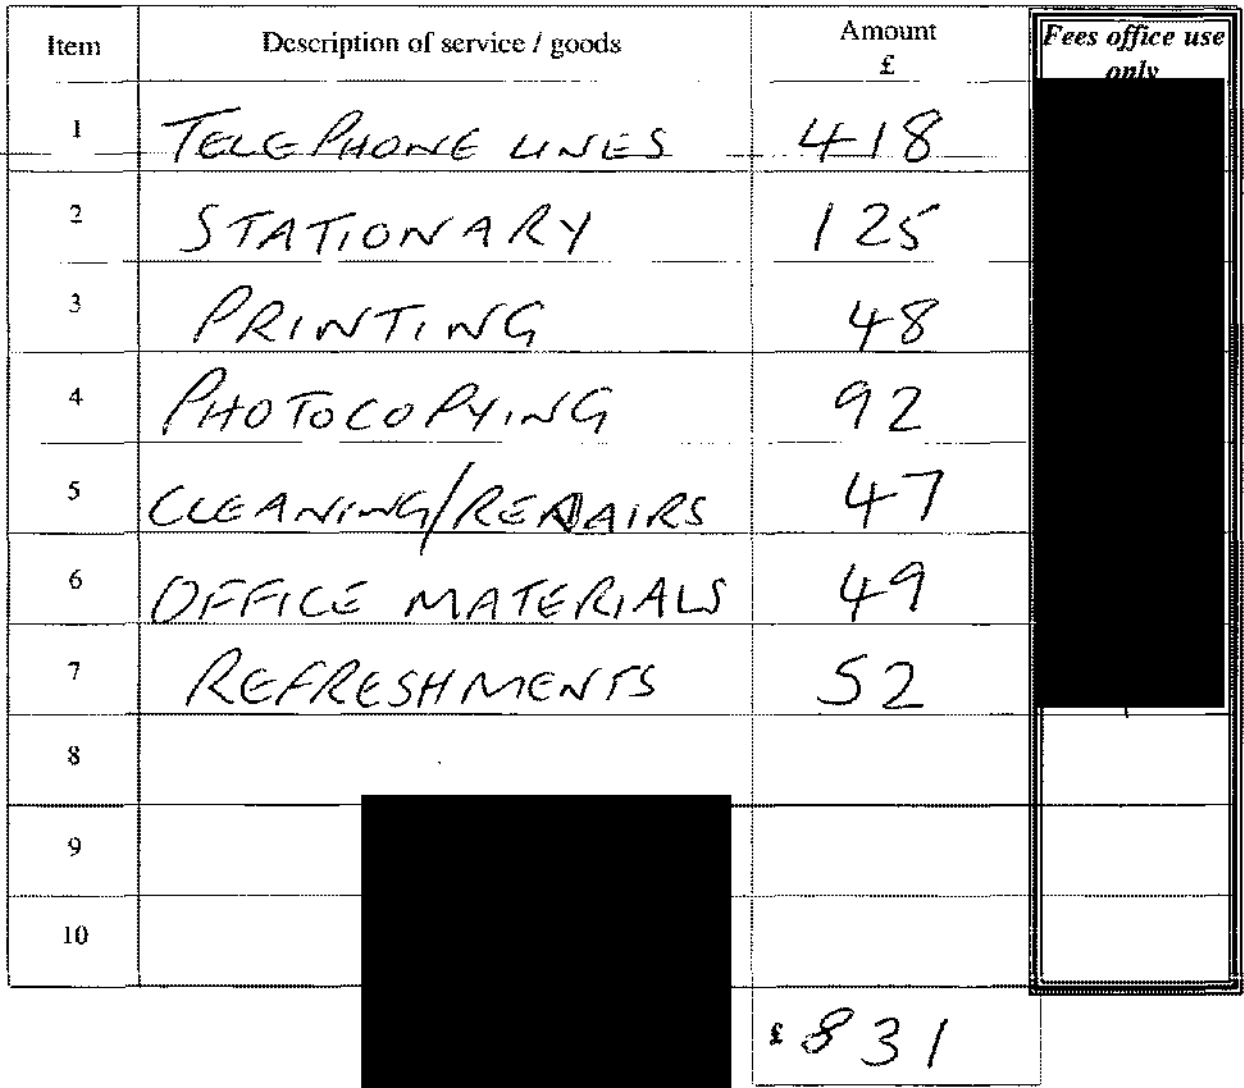 Item Description of service / goods Amount £ Fees office use only
1 TELEPHONE LINES 418
2 STATIONARY 125
3 PRINTING 48
4 PHOTOCOPYING 92
5 CLEANING/REPAIRS 47
6 OFFICE MATERIALS 49
7 REFRESHMENTS 52
8
9
10
£ 831